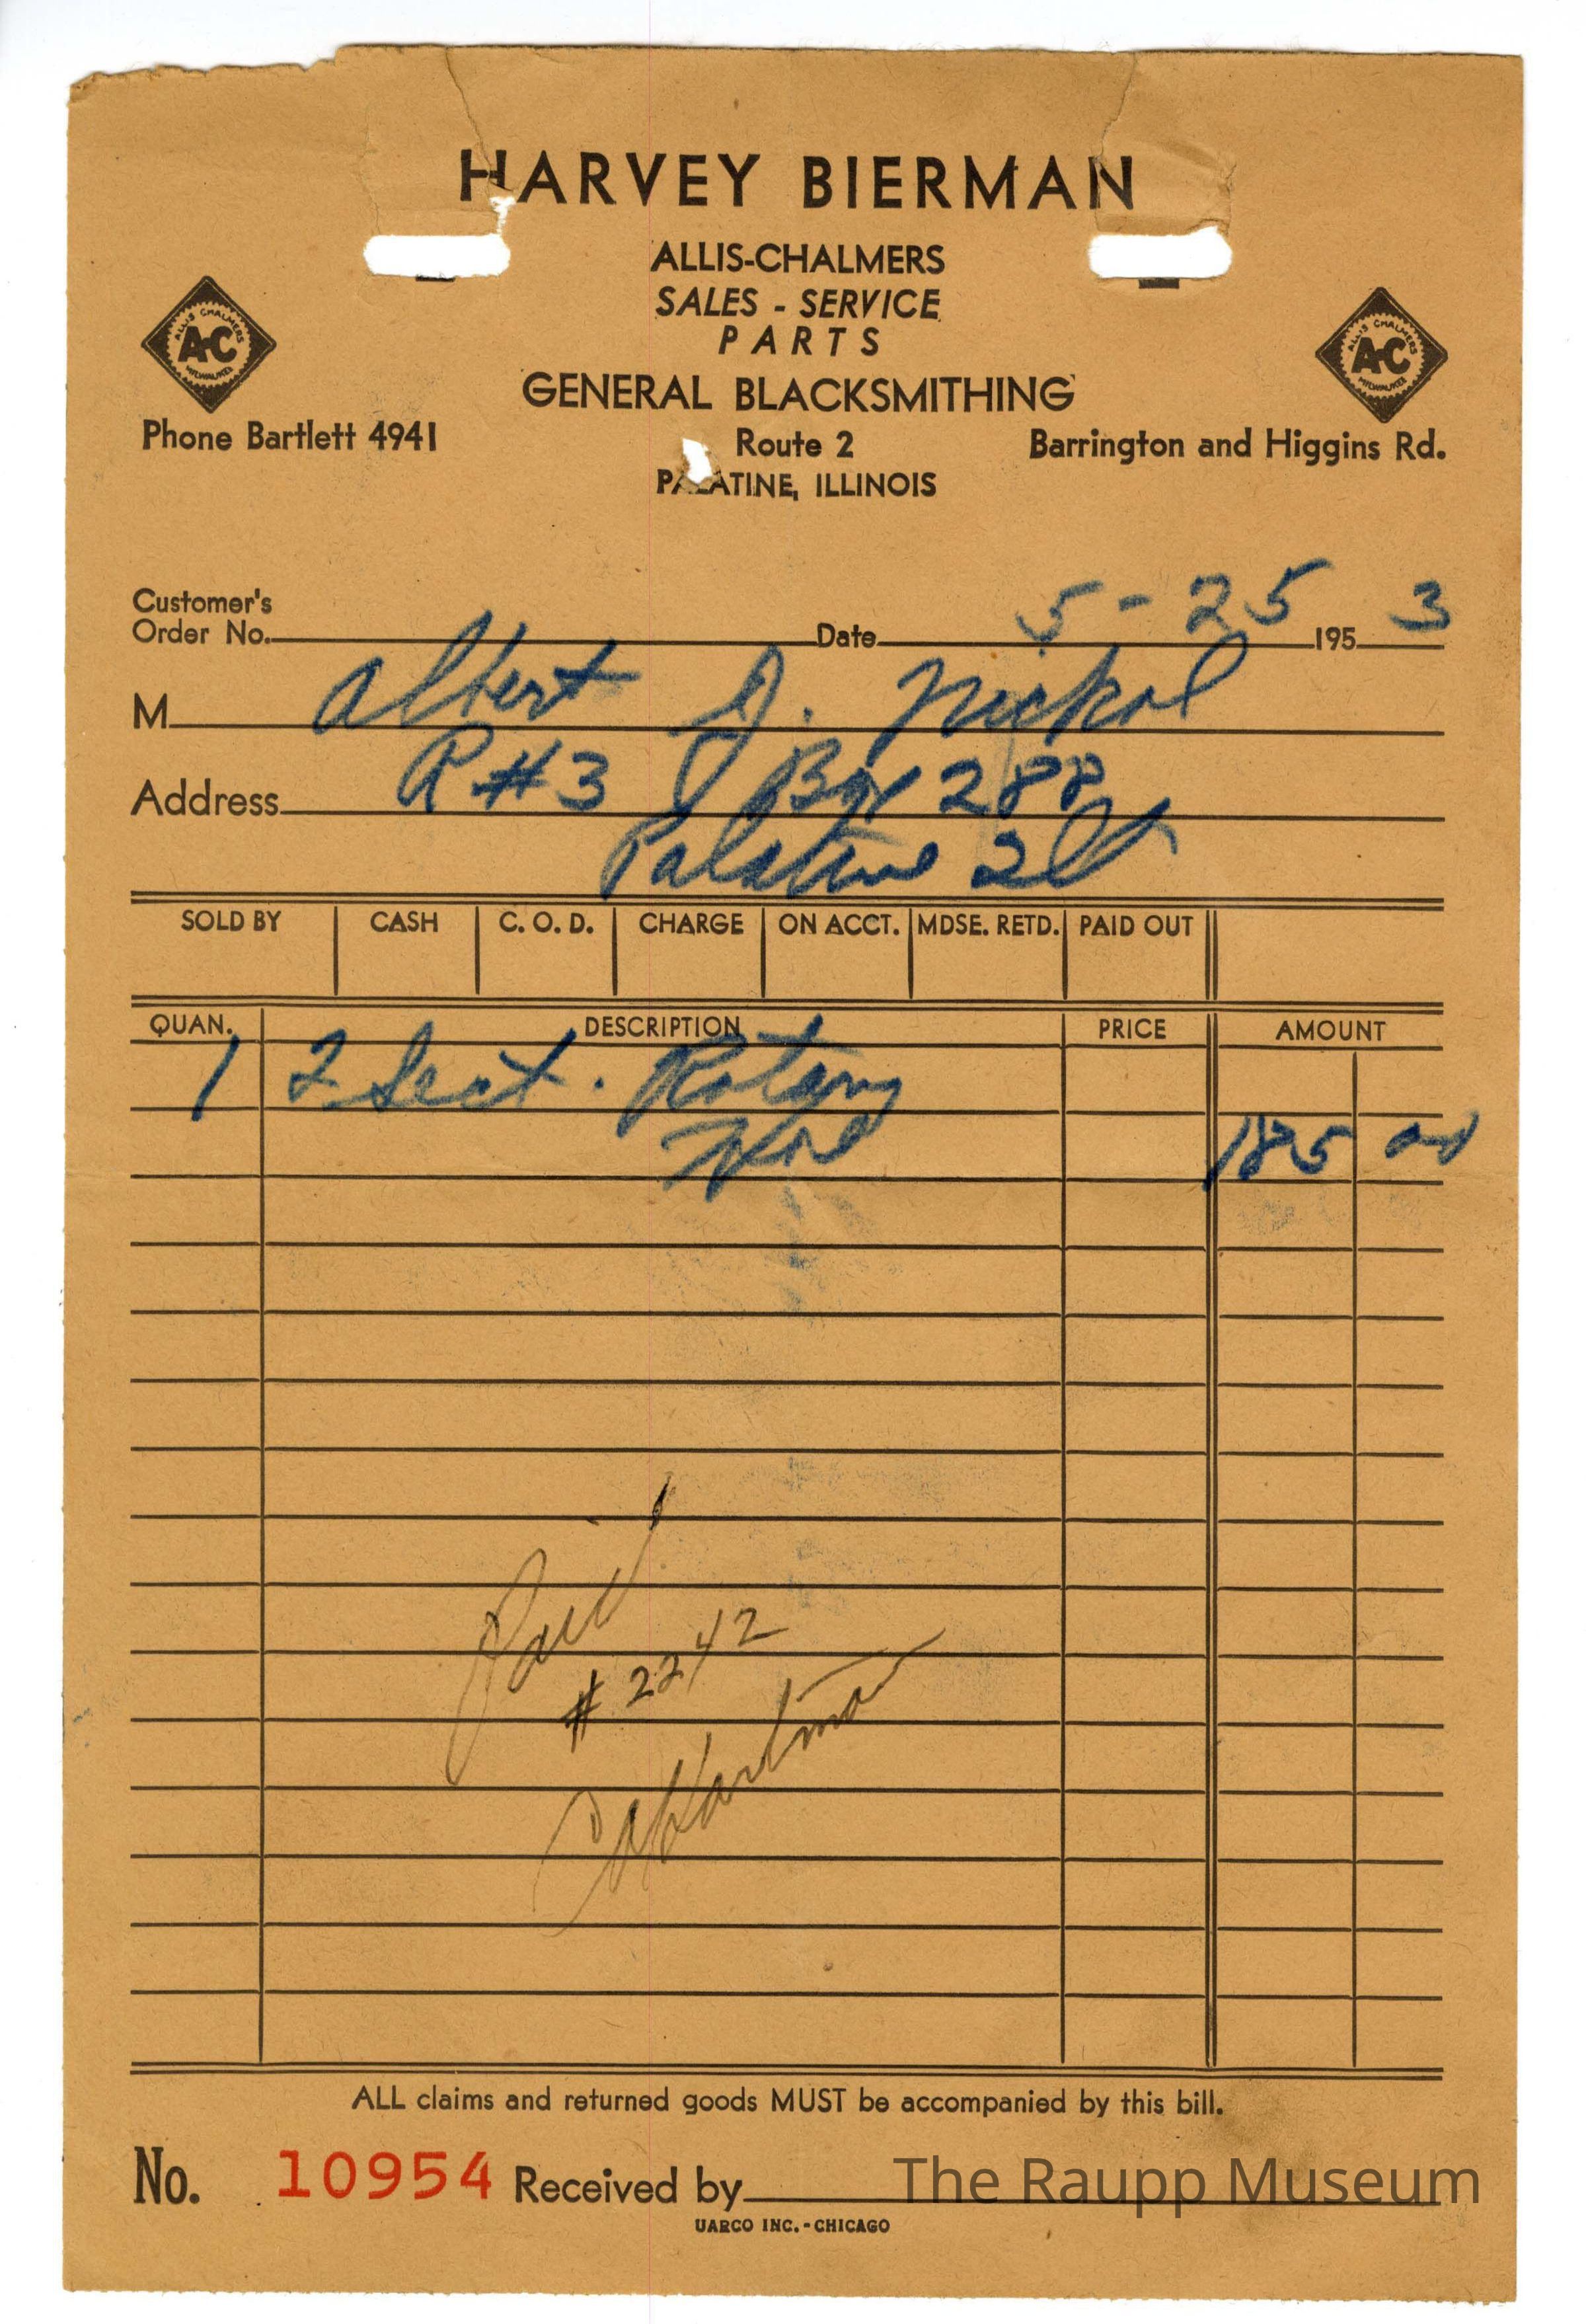 HARVEY BIERMAN
ALLIS-CHALMERS
SALES - SERVICE
PARTS
GENERAL BLACKSMITHING
ALLIS CHALMERS
A-C
MILWAUKEE
ALLIS CHALMERS
A-C
MILWAUKEE
Phone Bartlett 4941 Route 2 Barrington and Higgins Rd.
PALATINE, ILLINOIS
Customer's
Order No. Date 5-25 195 3
M Albert J. Nickol
Address R #3 Box 288
Palatine Ill
SOLD BY CASH C. O. D. CHARGE ON ACCT. MDSE. RETD. PAID OUT
QUAN. DESCRIPTION PRICE AMOUNT
1 2 Sect. Rotary
Hoe 185 00
Paid
# 2242
Hartman
ALL claims and returned goods MUST be accompanied by this bill.
No. 10954 Received by
The Raupp Museum
UARCO INC. - CHICAGO